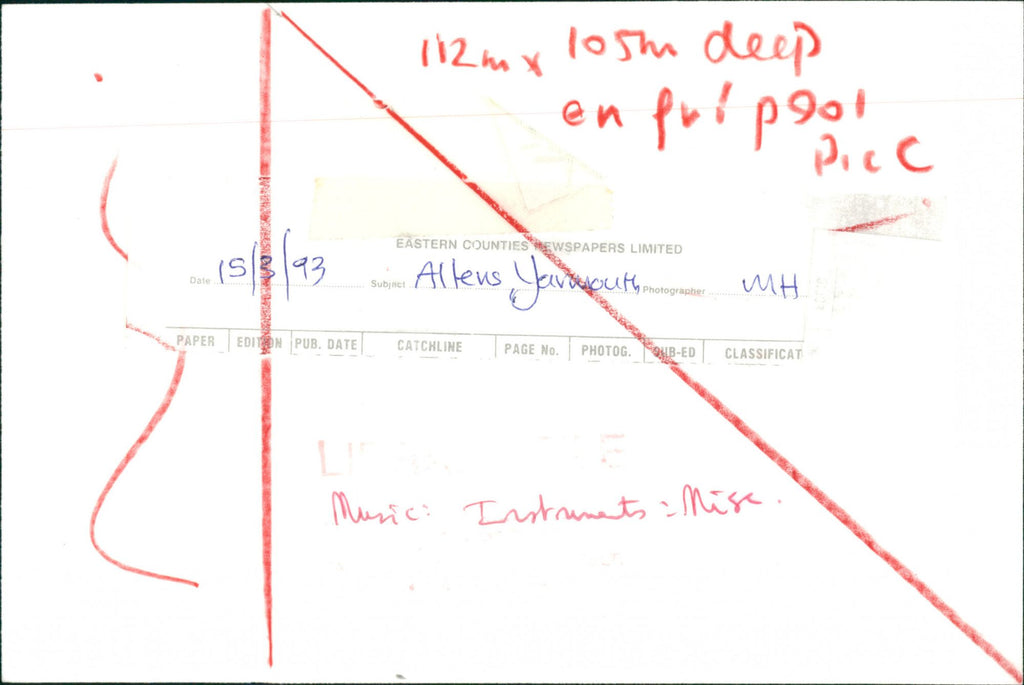 112m x 105m deep
en fri p901
Pic C
EASTERN COUNTIES NEWSPAPERS LIMITED
Date 15/3/93 Subject Altens, Yarmouth Photographer MH
PAPER EDITION PUB. DATE CATCHLINE PAGE No. PHOTOG. SUB-ED CLASSIFICAT
Music: Instruments: Misc.